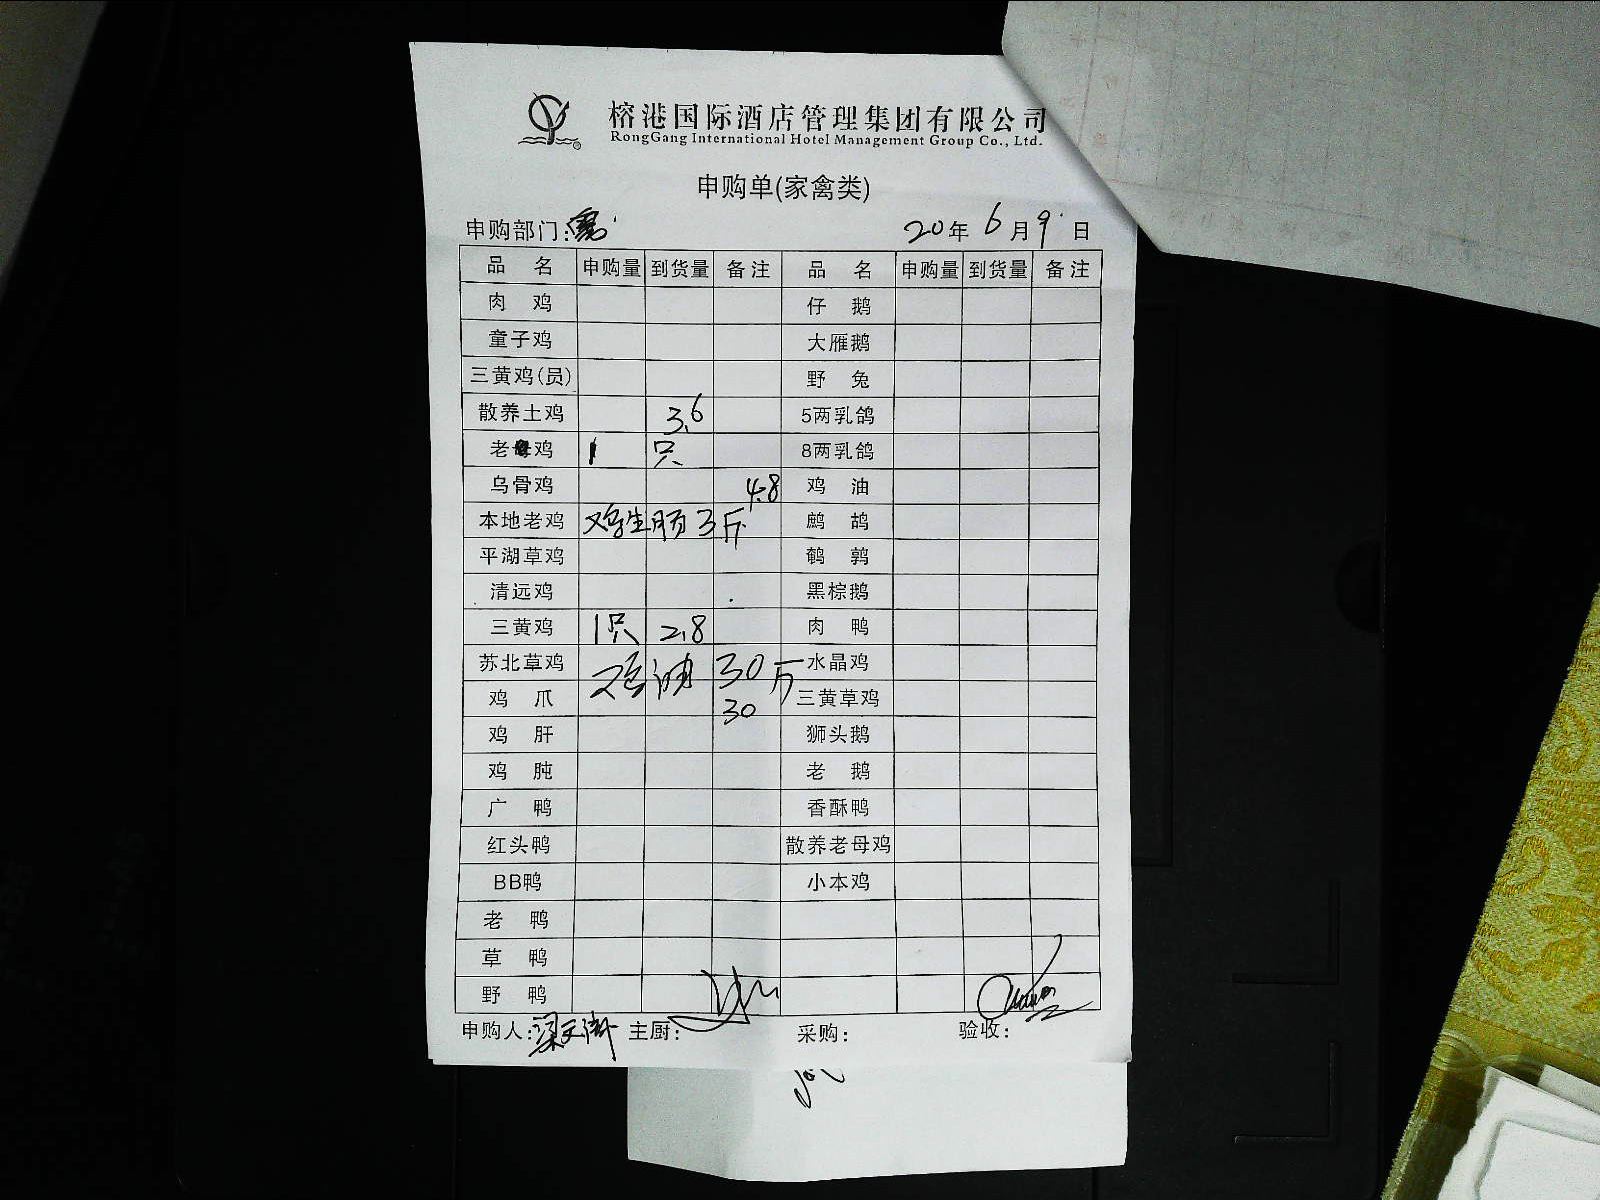 榕港国际酒店管理集团有限公司
RongGang International Hotel Management Group Co., Ltd.
申购单(家禽类)
申购部门: 20年 6月 9日
品名 申购量 到货量 备注 品名 申购量 到货量 备注
肉鸡 仔鹅
童子鸡 大雁鹅
三黄鸡(员) 野兔
散养土鸡 3.6 5两乳鸽
老母鸡 1 只 8两乳鸽
乌骨鸡 4.8 鸡油
本地老鸡 鸡生肠3斤 鹧鸪
平湖草鸡 鹌鹑
清远鸡 黑棕鹅
三黄鸡 1只 2.8 肉鸭
苏北草鸡 鸡油 30斤 水晶鸡
鸡爪 30 三黄草鸡
鸡肝 狮头鹅
鸡肫 老鹅
广鸭 香酥鸭
红头鸭 散养老母鸡
BB鸭 小本鸡
老鸭
草鸭
野鸭
申购人: 主厨: 采购: 验收: